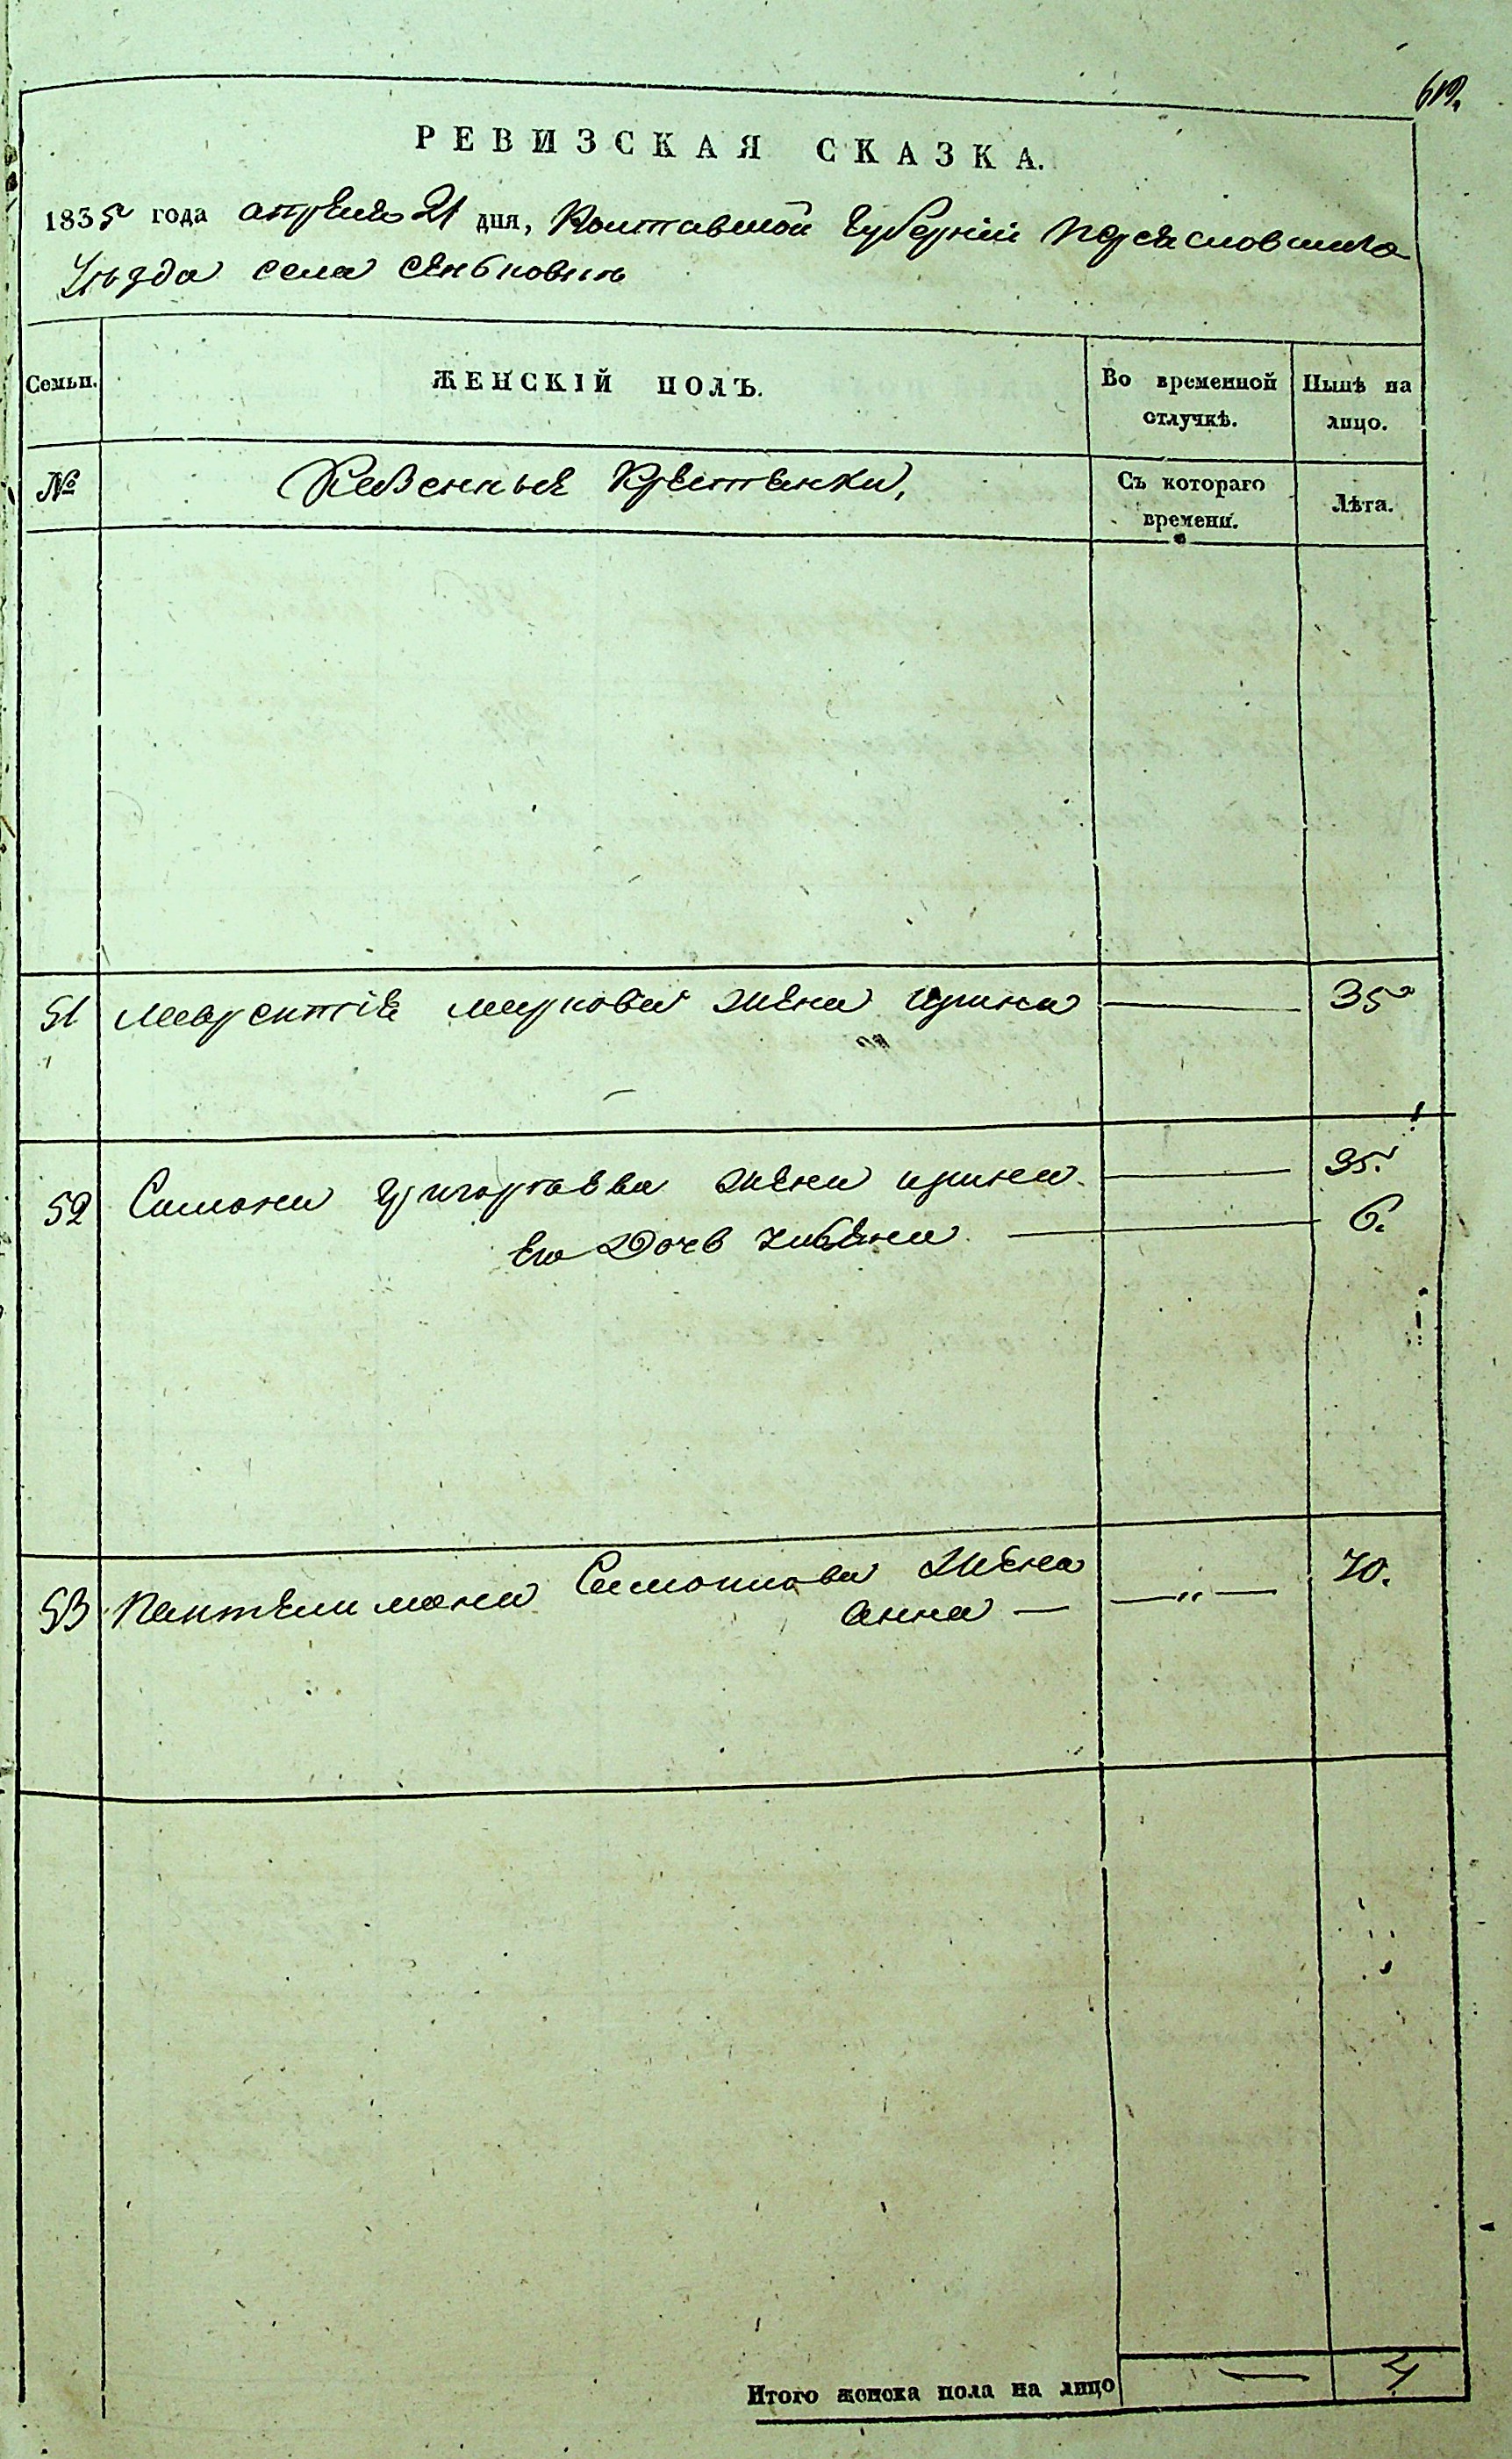 619.
РЕВИЗСКАЯ СКАЗКА.
1835 года апреля 21 дня, Полтавской Губернии Переясловскаго
Уѣзда села сеньковки
Семьи. ЖЕНСКІЙ ПОЛЪ. Во временной отлучкѣ. Нынѣ на лицо.
№ Казенные крестянки, Съ котораго времени. Лѣта.
51 лаврентіе маркова жена ирина — 35
52 Симона григориева жена ирина — 35.
Его Дочь — 6.
53 Пантелимона Самойлова жена — „ — 70.
анна —
Итого женска пола на лицо — 4